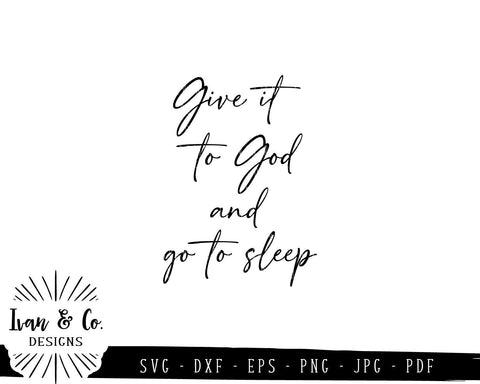 Give it
to God
and
go to sleep
Ivan & Co.
DESIGNS
SVG - DXF - EPS - PNG - JPG - PDF